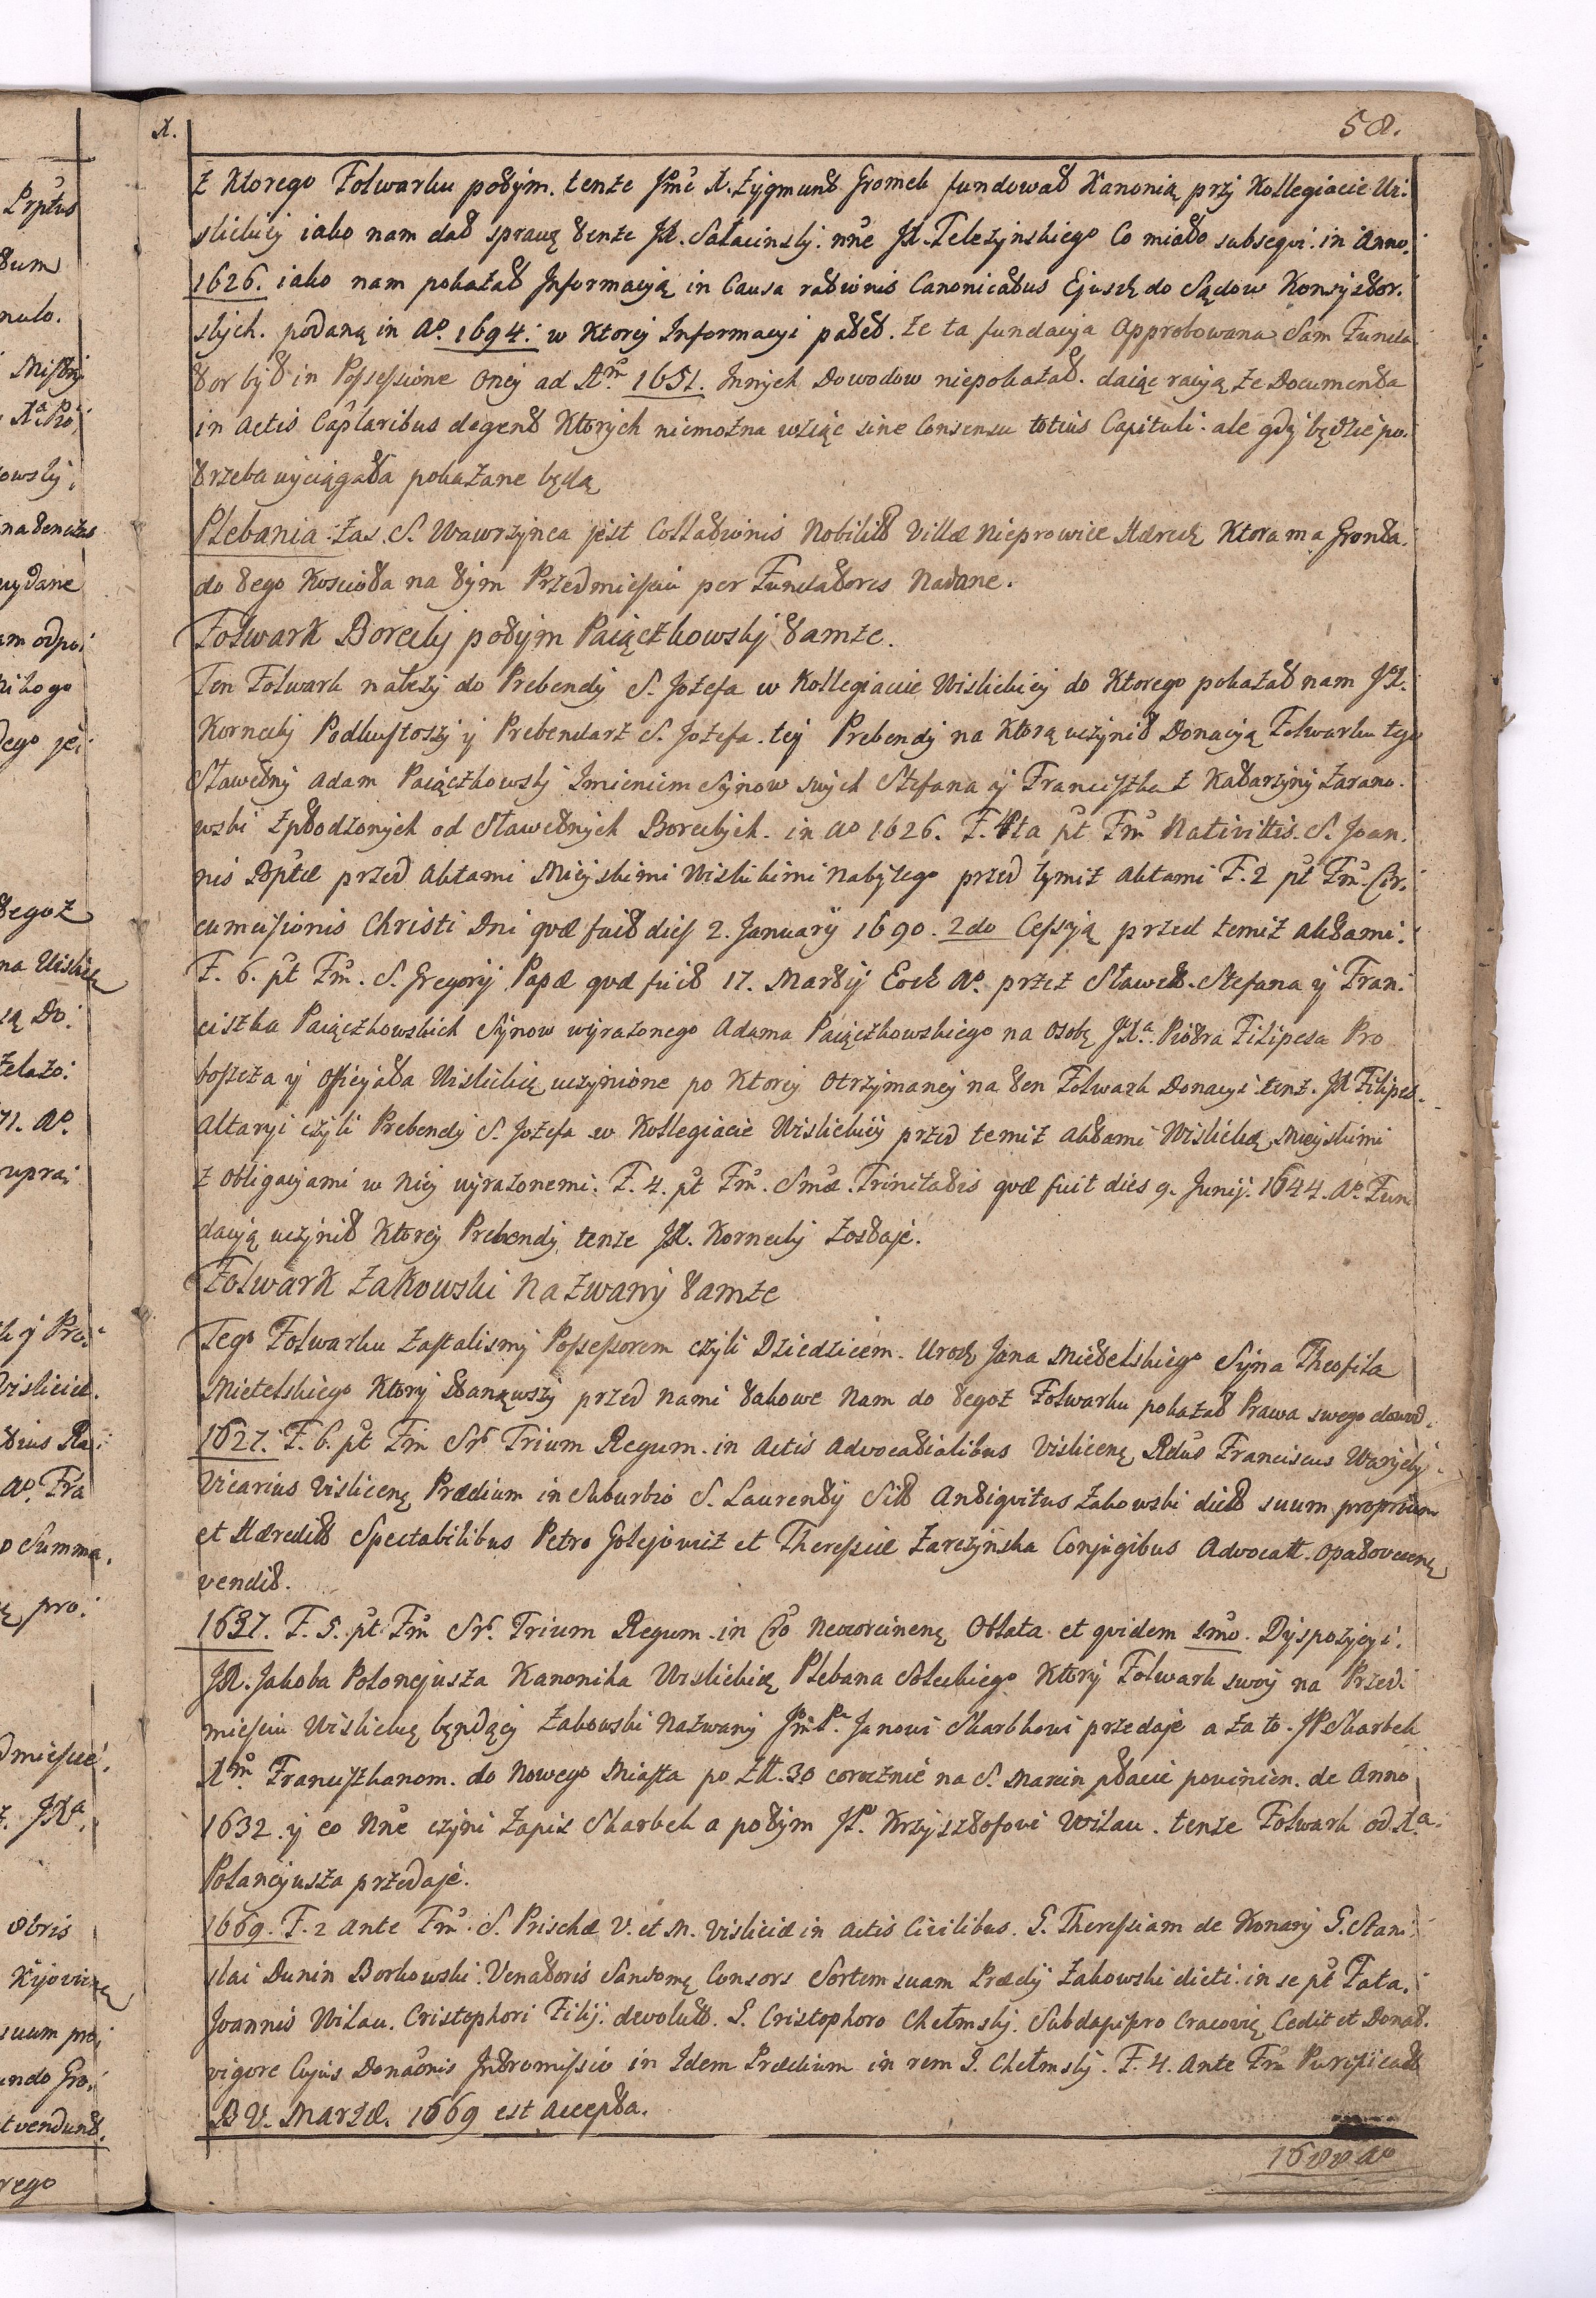 58.
z Ktorego Folwarku potym. tenże Jmć X. Zygmunt Gromek fundował Kanonią przy Kollegiacie Wi:
slickiey iako nam dał sprawę tenże JX. Sałacinsky. nnė JX. Telezynskiego Co miało subsequi. in Anno.
1626. iako nam pokazał Informacyią in Causa rationis Canonicatus Ejusd do Sądow Konsystor.
skich. podaną in Aº. 1694. w Ktorey Informacyi patet. że ta fundacyja Approbowana Sam Funda
tor był in Possessione oney ad Am. 1651. Innych Dowodow niepokazał. daiąc racyią że Documenta
in Actis Caplaribus degent Ktorych niemożna wziąc sine Consensu totius Capituli. ale gdy będzie po.
trzeba wyciągała pokazane będą
Plebania. zas. S. Wawrzynca jest Collationis Nobiliū Villæ Nieprowice Hæred Ktora ma Gronta.
do tego Koscioła na tym Przedmiesciu per Fundatores Nadane.
Folwark Borecky potym Paiączkowsky tamże.
Ten Folwark należy do Prebendy S. Jozefa w Kollegiacie Wislickiey do Ktorego pokazał nam JX.
Kornecky Podkustoszy y Prebendarz S. Jozefa. tey Prebendy na Ktorą uczynił Donacyią Folwarku tego
Sławetny Adam Paiączkowsky Imieniem Synow swych Stefana y Franciszka z Katarzyny Zarano.
wski zpłodzonych od Sławetnych Boreckych. in Aº 1626. F. 4ta pt Fm Nativittis. S. Joan.
nis Bptæ przed Aktami Mieyskimi Wislickimi Nabytego przed tymiż Aktami F. 2 pt Fm. Cir.
cumcisionis Christi Dni quæ fuit dies 2. January 1690. 2do Cessyią przed temiż aktami.
F. 6. pt Fm. S. Gregory Papæ quæ fuit 17. Marty Eod Aº. przez Sławet. Stefana y Fran.
ciszka Paiączkowskich Synow wyrazonego Adama Paiączkowskiego na osobę JXa. Piotra Filipesa Pro
boszcza y Officyjała Wislickię uczynione po Ktorey otrzymaney na ten Folwark Donacyi tenż. JX Filipes.
Altaryi czyli Prebendy S. Jozefa w Kollegiacie Wislickiey przed temiż aktami Wislickię Mieyskimi
z obligacyjami w Niey wyrazonemi. F. 4. pt Fm. Smæ. Trinitatis quæ fuit dies 9. Junij. 1644. Aº. Fun
dacyią uczynił Ktorey Prebendy tenże JX. Kornecky zostaje.
Folwark Zakowski Nazwany tamże
Tego Folwarku zastalismy Possessorem czyli Dziedzicem. Urod Jana Mietelskiego Syna Theofila
Mietelskiego Ktory stanąwszy przed nami takowe Nam do tegoż Folwarku pokazał Prawa swego dowod.
1627. F. 6. pt Fm Sr. Trium Regum. in Actis Advocatialibus Vislicenę Rdus Franciscus Warycky
Vicarius Vislicenę Prædium in Suburbio S. Laurenty Sit Antiquitus Zakowski dict suum proprium
et Hæredit Spectabilibus Petro Golejowicz et Theressiæ Zarczynska Conjugibus Advocatt. Opatovcenę
vendit.
1637. F. 5. pt Fm Sr. Trium Regum. in Cro Neocorcinenę Oblata et quidem 1mo. Dyspozycyi.
JX. Jakoba Polonejusza Kanonika Wislickię Plebana Soleckiego Ktory Folwark swoy na Przed.
miesciu Wislickię bęndący Zakowski Nazwany Jm Pu. Janowi Skarbkowi przedaje a za to. JP Skarbek
Xm Franciszkanom. do Nowego Miasta po Ztt. 30 corocznie na S. Marcin płacic powinien. de Anno
1632. y co nnė czyni Zapis Skarbek a potym JP. Krzysztofowi Wilau. tenże Folwark od Xa.
Polancyusza przedaje.
1669. F. 2 Ante Fm. S. Priscæ V. et M. Visliciæ in Actis Civilibus. G. Theressiam de Konary G. Stani.
slai Dunin Borkowski. Venatoris Sandomę Consors Sortem suam Prædy Zakowski dicti. in se pt Fata.
Joannis Wilau. Cristophori Filij. devolutt. G. Cristophoro Chełmsky. Subdapifero Cracovię Cedit et Donat.
vigore Cujus Donaonis Intromissio in Idem Prædium in rem G. Chełmsky. F. 4. Ante Fm Purificatt
B V. Mariæ. 1669 est accepta.
1688 Aº